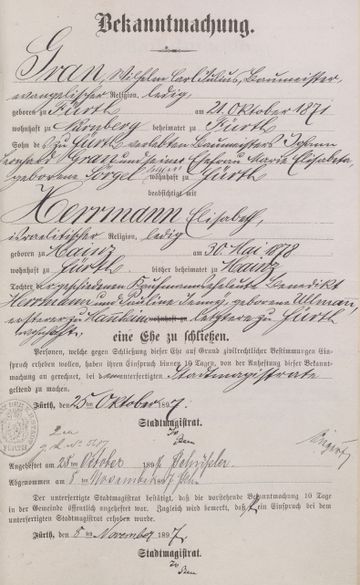 Bekanntmachung.
Gran, Wilhelm Carl Julius, Baumeister,
evangelischer Religion, ledig,
geboren zu Fürth am 21. Oktober 1871
wohnhaft zu Nürnberg beheimatet zu Fürth
Sohn des zu Fürth verlebten Baumeisters Johann
Gran und seiner Ehefrau Maria Elisabeta,
geborene Sörgel wohnhaft zu Fürth
beabsichtigt mit
Herrmann Elisabeth,
israelitischer Religion, ledig
geboren zu Mainz am 30. Mai 1878
wohnhaft zu Fürth, bisher beheimatet zu Mainz
Tochter der geschiedenen Kaufmannseheleute Benedikt
Herrmann und Pauline Jenny, geborene Ullmann,
ersterer zu letztere zu Fürth
wohnhaft,
eine Ehe zu schließen.
Personen, welche gegen Schließung dieser Ehe auf Grund zivilrechtlicher Bestimmungen Ein-
spruch erheben wollen, haben ihren Einspruch binnen 10 Tagen, von der Anheftung dieser Bekannt-
machung an gerechnet, bei dem unterfertigten Stadtmagistrate
geltend zu machen.
Fürth, den 25. Oktober 1897.
Stadtmagistrat.
Angeheftet am 28 ten October 1897
Abgenommen am 8 ten November 1897
Der unterfertigte Stadtmagistrat bestätigt, daß die vorstehende Bekanntmachung 10 Tage
in der Gemeinde öffentlich angeheftet war. Zugleich wird bemerkt, daß ein Einspruch bei dem
unterfertigten Stadtmagistrat erhoben wurde.
Fürth, den 8 ten November 1897
Stadtmagistrat.